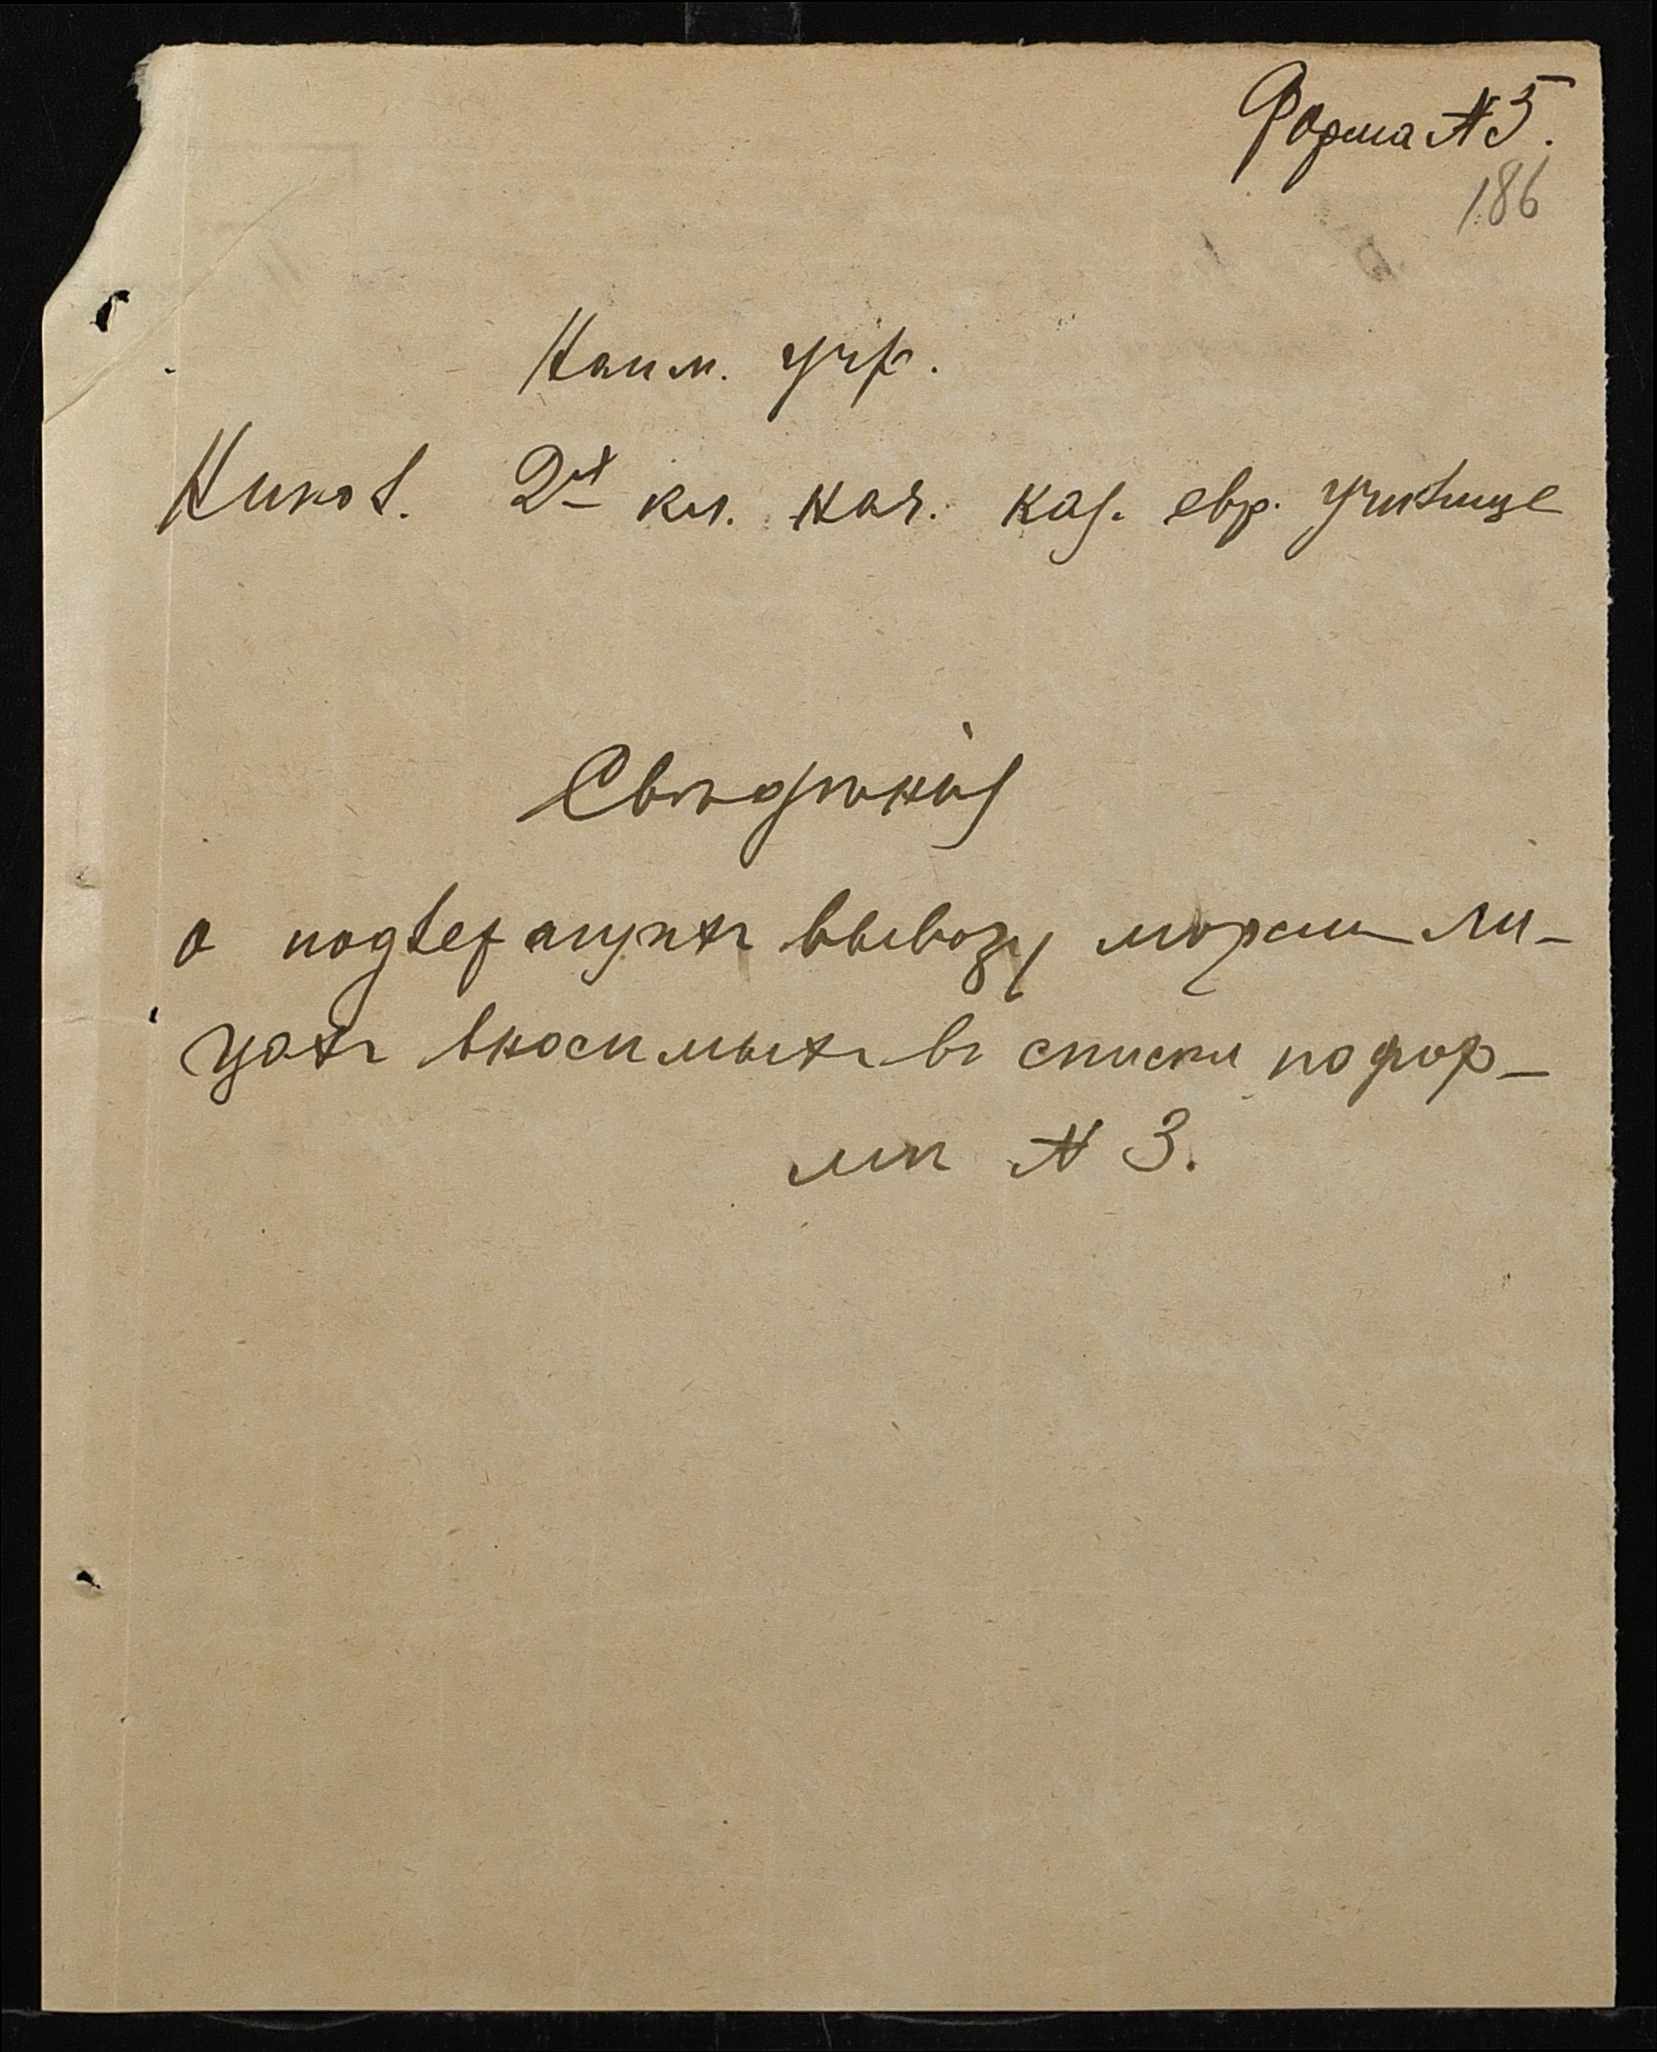 Форма № 5.
186
Наим. учр.
Никол. 2х кл. нач. каз. евр. училище
Свѣдѣнія
о подлежащихъ вывозу моремъ ли-
цахъ вносимыхъ въ списки по фор-
мѣ № 3.